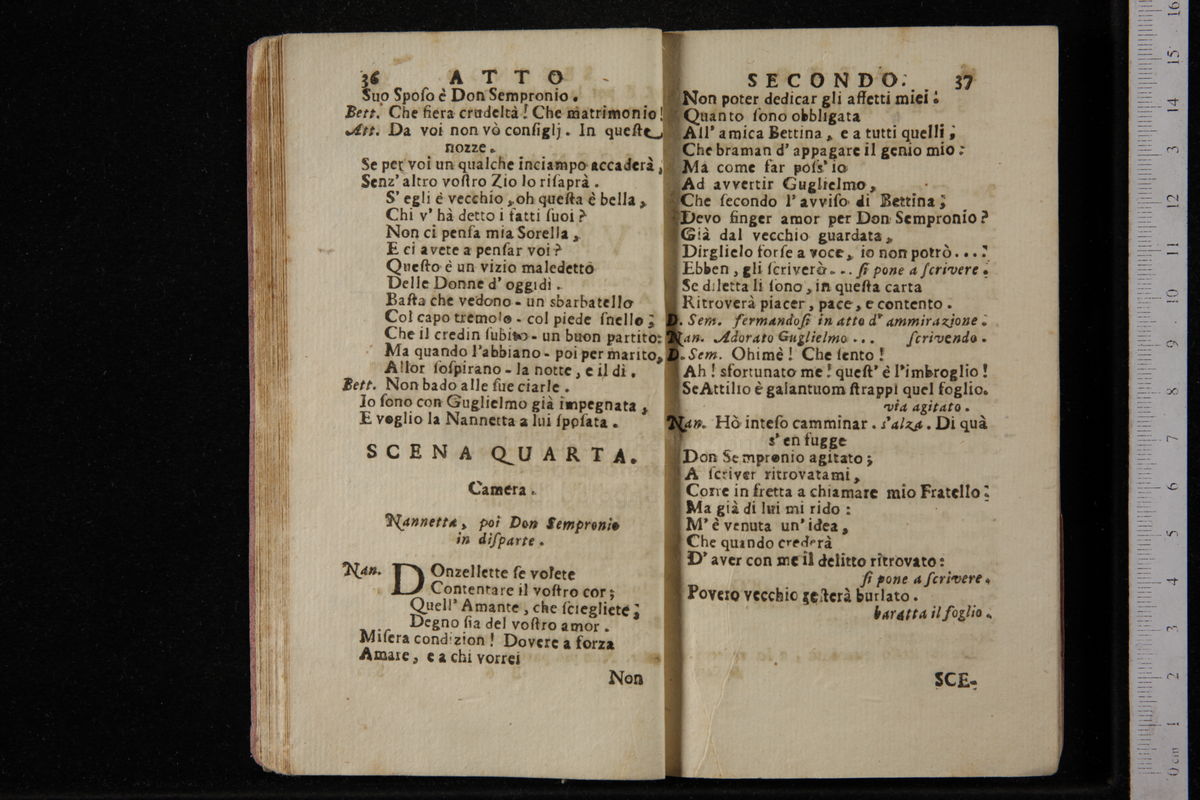 36 ATTO
Suo Sposo è Don Sempronio.
Bett. Che fiera crudeltà! Che matrimonio!
Att. Da voi non vò consiglj. In queste
nozze.
Se per voi un qualche inciampo accaderà,
Senz' altro vostro Zio lo risaprà.
S' egli é vecchio, oh questa è bella,
Chi v' hà detto i fatti suoi?
Non ci pensa mia Sorella,
E ci avete a pensar voi?
Questo è un vizio maledetto
Delle Donne d' oggidì.
Basta che vedono - un sbarbatello
Col capo tremolo - col piede snello;
Che il credin subito - un buon partito:
Ma quando l'abbiano - poi per marito,
Allor sospirano - la notte, e il dì.
Bett. Non bado alle sue ciarle.
Io sono con Guglielmo già impegnata,
E voglio la Nannetta a lui sposata.
SCENA QUARTA.
Camera.
Nannetta, poi Don Sempronio
in disparte.
Nan. DOnzellette se volete
Contentare il vostro cor;
Quell' Amante, che sciegliete;
Degno sia del vostro amor.
Misera condizion! Dovere a forza
Amare, e a chi vorrei
Non
SECONDO. 37
Non poter dedicar gli affetti miei!
Quanto sono obbligata
All' amica Bettina, e a tutti quelli,
Che braman d' appagare il genio mio:
Ma come far poss' io
Ad avvertir Guglielmo,
Che secondo l' avviso di Bettina;
Devo finger amor per Don Sempronio?
Già dal vecchio guardata,
Dirglielo forse a voce, io non potrò...:
Ebben, gli scriverò... si pone a scrivere.
Se diletta li sono, in questa carta
Ritroverà piacer, pace, e contento.
D. Sem. fermandosi in atto d' ammirazione.
Nan. Adorato Guglielmo... scrivendo.
D. Sem. Ohimè! Che sento!
Ah! sfortunato me! quest' è l'imbroglio!
Se Attilio è galantuom strappi quel foglio.
via agitato.
Nan. Hò inteso camminar. s'alza. Di quà
s' en fugge
Don Sempronio agitato;
A scriver ritrovatami,
Corre in fretta a chiamare mio Fratello:
Ma già di lui mi rido:
M' è venuta un' idea,
Che quando crederà
D' aver con me il delitto ritrovato:
si pone a scrivere.
Povero vecchio resterà burlato.
baratta il foglio.
SCE-
0 cm 1 2 3 4 5 6 7 8 9 10 11 12 13 14 15 16